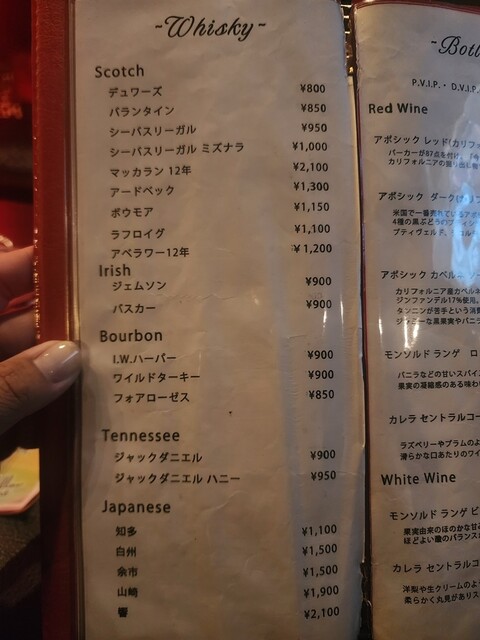 ~Whisky~
Scotch
デュワーズ ¥800
バランタイン ¥850
シーバスリーガル ¥950
シーバスリーガル ミズナラ ¥1,000
マッカラン 12年 ¥2,100
アードベック ¥1,300
ボウモア ¥1,150
ラフロイグ ¥1,100
アベラワー12年 ¥1,200
Irish
ジェムソン ¥900
バスカー ¥900
Bourbon
I.W.ハーパー ¥900
ワイルドターキー ¥900
フォアローゼス ¥850
Tennessee
ジャックダニエル ¥900
ジャックダニエル ハニー ¥950
Japanese
知多 ¥1,100
白州 ¥1,500
余市 ¥1,500
山崎 ¥1,900
響 ¥2,100
P.V.I.P.・D.V.I.P.
Red Wine
アポシック レッド(カリフォ
パーカーが87点を付け、
カリフォルニアの
アポシック ダーク(カリフ
米国で一番売れているアポ
4種の黒ぶどうの
プティヴェルド、
アポシック カベルネ
カリフォルニア産カベルネ
ジンファンデル17%使用。
タンニンが苦手という消費
ジャミーな黒果実やバニラ
モンソルド ランゲ ロ
バニラなどの甘いスパイ
果実の凝縮感のある味わ
カレラ セントラルコー
ラズベリーやプラムのよ
滑らかな口あたりのワイ
White Wine
モンソルド ランゲ ビ
果実由来のほのかな甘
ほどよい酸のバランス
カレラ セントラルコ
洋梨や生クリームのよ
柔らかく丸見がありス